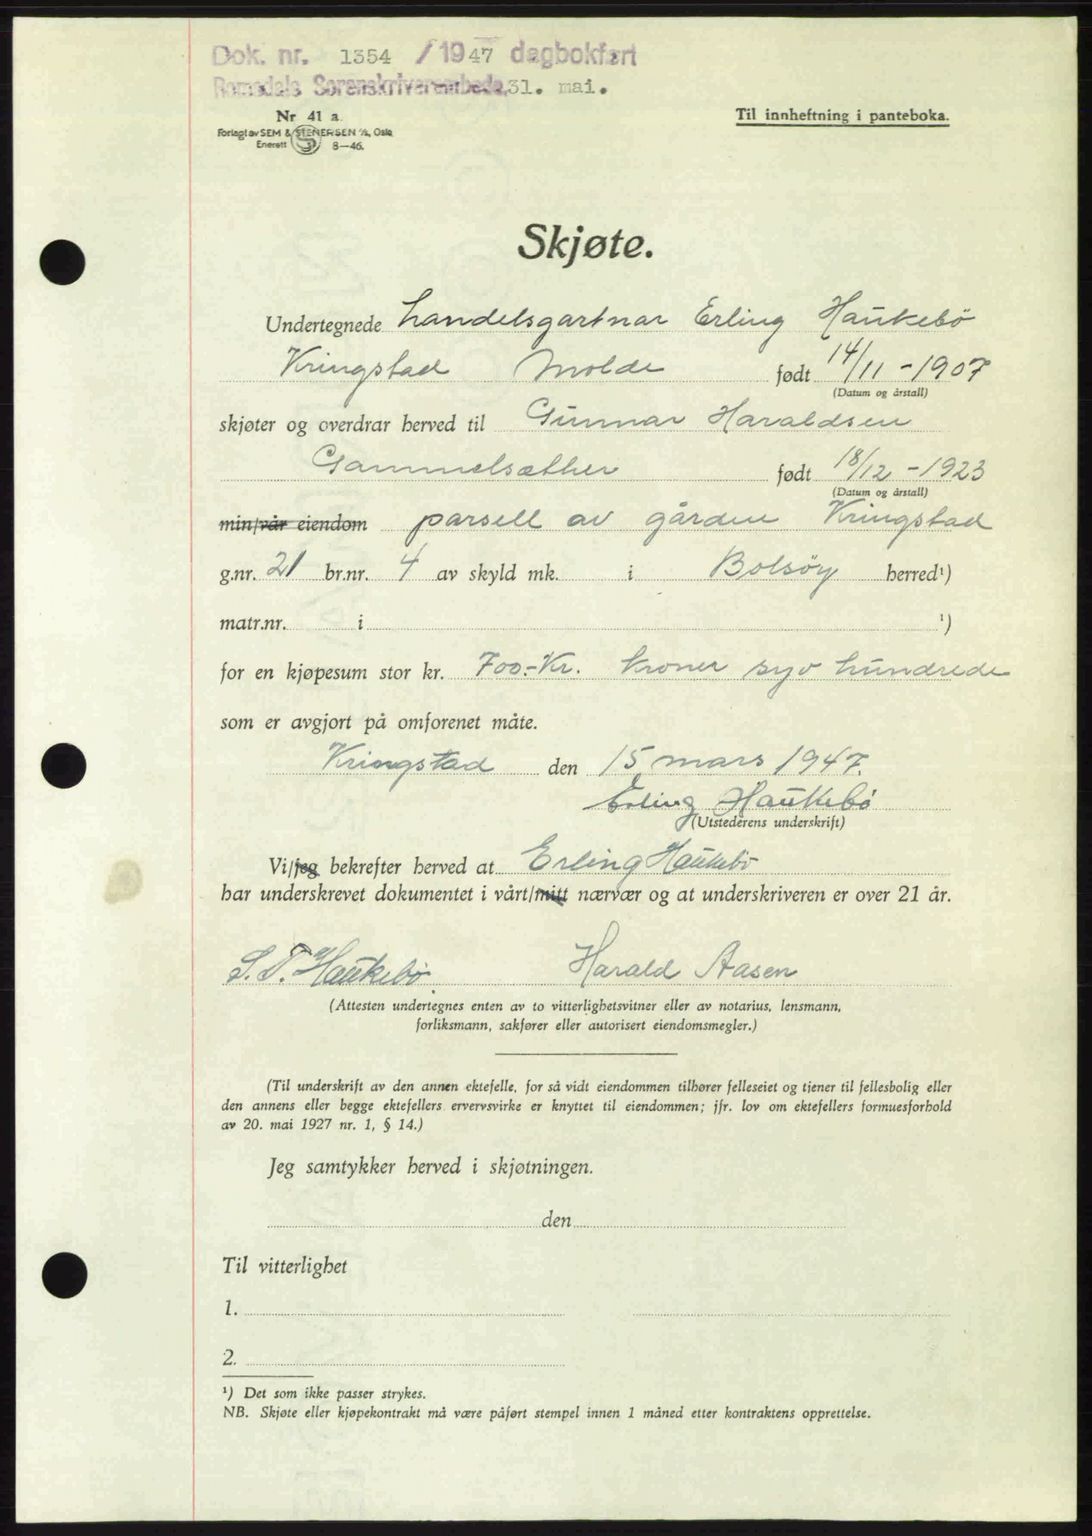 Dok. nr. 1354 /1947 dagbokført
Romsdals Sorenskriverembede 31. mai.
Nr 41 a.
Forlagt av SEM & STENERSEN A/S, Oslo
Enerett 8—46.
Til innheftning i panteboka.
Skjøte.
Undertegnede handelsgartnar Erling Haukebö
Kringstad Molde født 14/11 - 1907
(Datum og årstall)
skjøter og overdrar herved til Gunnar Haraldsen
Gammelsæther født 18/12 - 1923
(Datum og årstall)
min/vår eiendom parsell av gården Kringstad
g.nr. 21 br.nr. 4 av skyld mk. i Bolsöy herred¹)
matr.nr. i ¹)
for en kjøpesum stor kr. 700.- Kr. kroner syv hundrede
som er avgjort på omforenet måte.
Kringstad den 15 mars 1947.
Erling Haukebö
(Utstederens underskrift)
Vi/jeg bekrefter herved at Erling Haukebö
har underskrevet dokumentet i vårt/mitt nærvær og at underskriveren er over 21 år.
S. T. Haukebö. Harald Aasen
(Attesten undertegnes enten av to vitterlighetsvitner eller av notarius, lensmann,
forliksmann, sakfører eller autorisert eiendomsmegler.)
(Til underskrift av den annen ektefelle, for så vidt eiendommen tilhører felleseiet og tjener til fellesbolig eller
den annens eller begge ektefellers ervervsvirke er knyttet til eiendommen; jfr. lov om ektefellers formuesforhold
av 20. mai 1927 nr. 1, § 14.)
Jeg samtykker herved i skjøtningen.
den
Til vitterlighet
1.
2.
¹) Det som ikke passer strykes.
NB. Skjøte eller kjøpekontrakt må være påført stempel innen 1 måned etter kontraktens opprettelse.